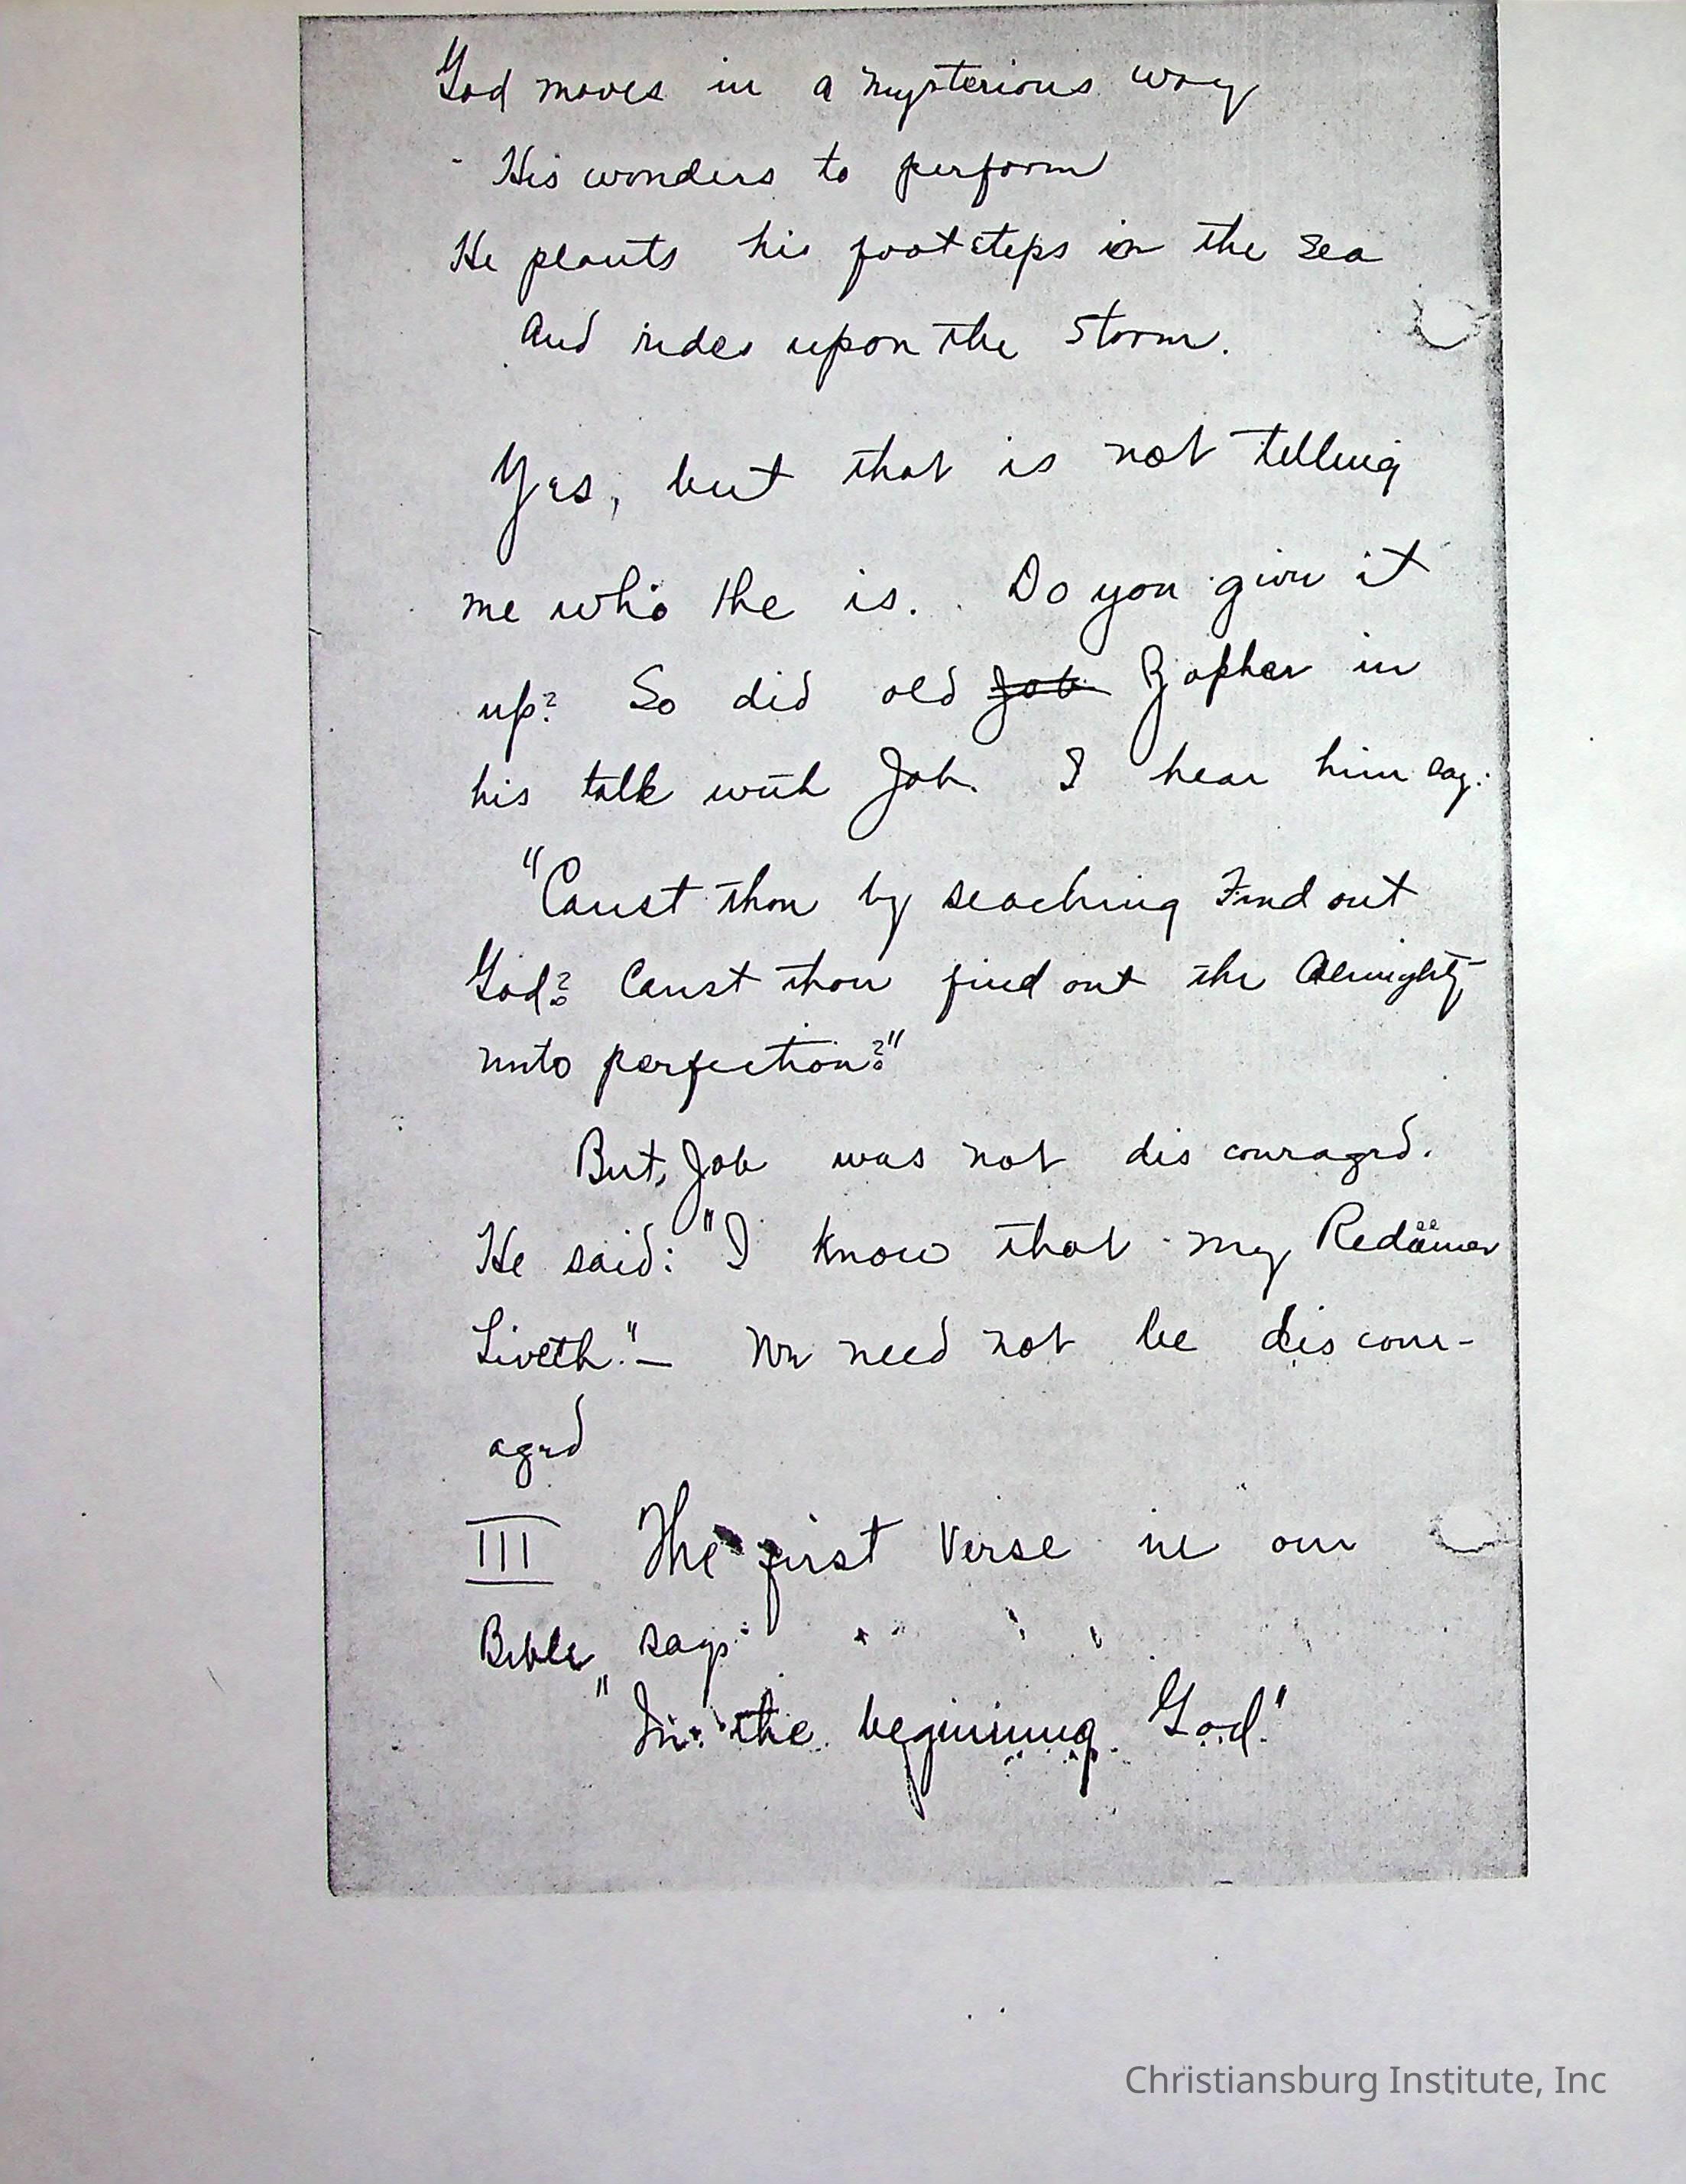 God moves in a mysterious way
- His wonders to perform
He plants his footsteps in the sea
And rides upon the storm.
Yes, but that is not telling
me who He is. Do you give it
up? So did old Job Zophar in
his talk with Job. I hear him say:
"Canst thou by seaching Find out
God? Canst thou find out the Almighty
unto perfection?"
But, Job was not discouraged.
He said: "I know that my Redeemer
Liveth." — We need not be discour-
aged
III The first Verse in our
Bible says:
"In the beginning God."
Christiansburg Institute, Inc